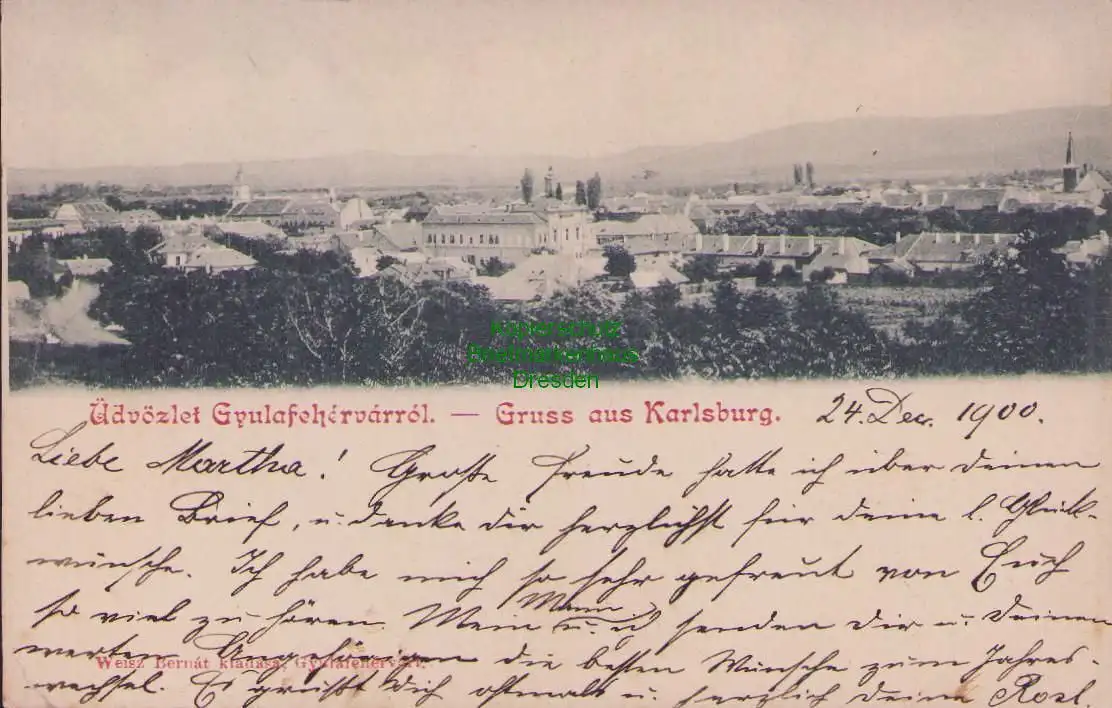 Küperschutz
Briefmarkenhaus
Dresden
Üdvözlet Gyulafehérvárról. — Gruss aus Karlsburg. 24. Dec. 1900.
Liebe Martha! Große Freude hatte ich über deinen
lieben Brief, u. danke dir herzlichst für deine l. Glück-
wünsche. Ich habe mich so sehr gefreut von Euch
so viel zu hören. Mein Mann u. ich senden dir u. deinen
werten Angehörigen die besten Wünsche zum Jahres-
Weisz Bernát kiadása, Gyulafehérvárt.
wechsel. Es grüßt dich oftmals u. herzlich deine Rosl.